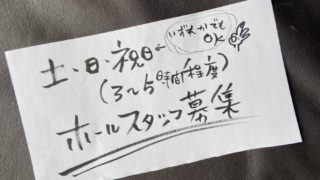 土・日・祝日←いずれかでも
OK
(3〜5時間程度)
ホールスタッフ募集